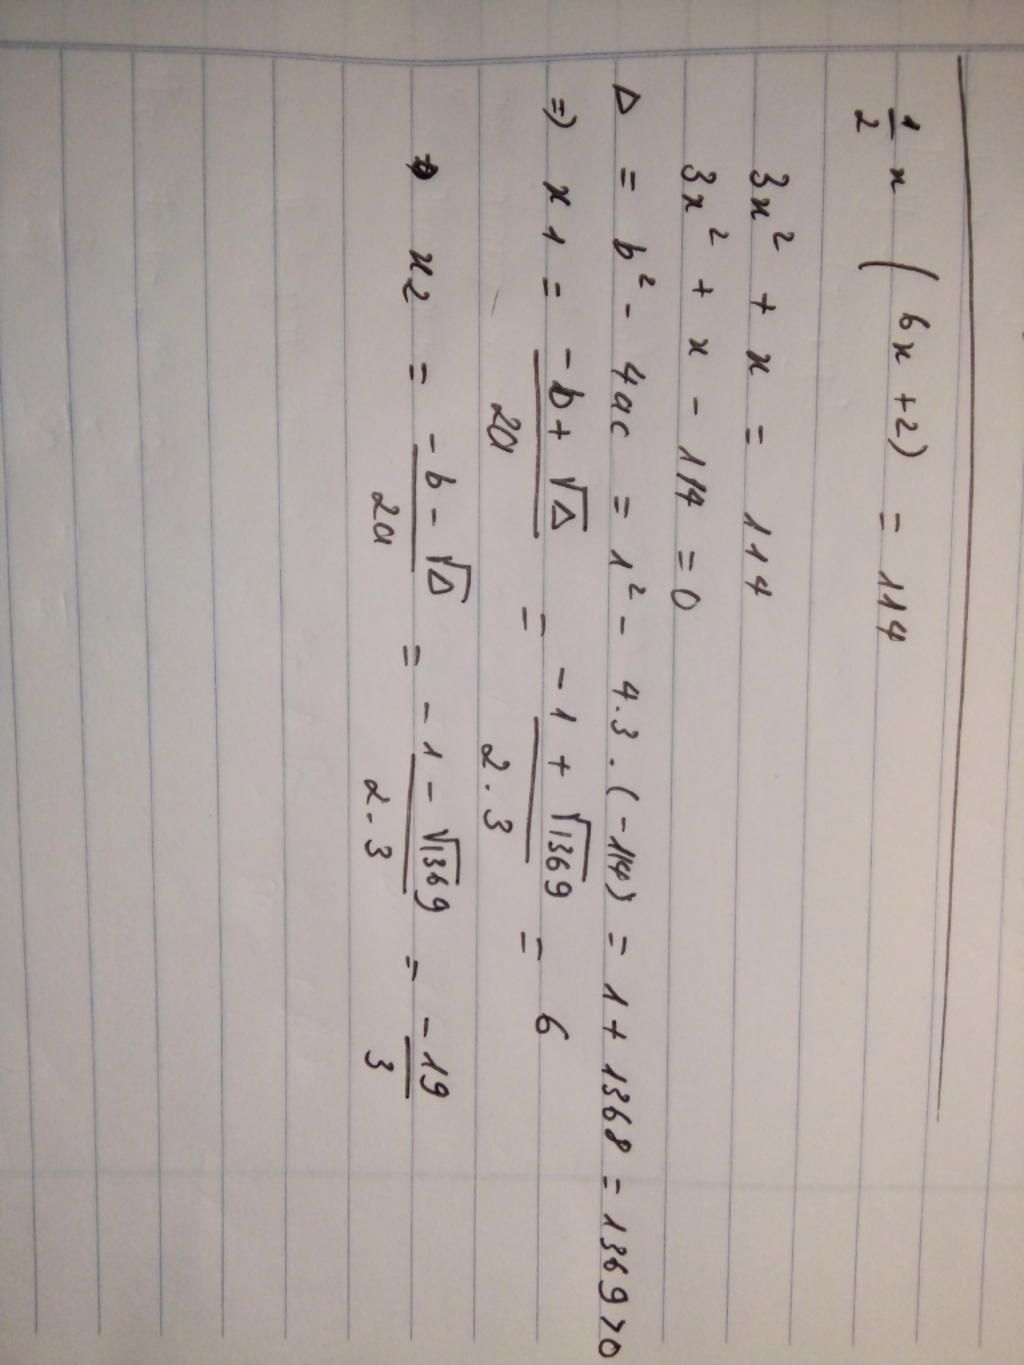 1/2 x (6x + 2) = 114
3x² + x = 114
3x² + x - 114 = 0
Δ = b² - 4ac = 1² - 4.3.(-114) = 1 + 1368 = 1369 > 0
=> x1 = (-b + √Δ)/2a = (-1 + √1369)/2.3 = 6
x2 = (-b - √Δ)/2a = (-1 - √1369)/2.3 = -19/3